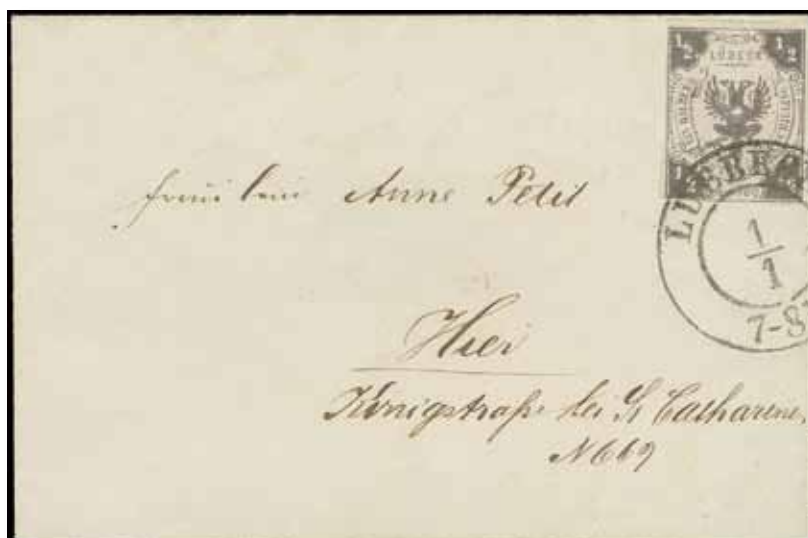 1/2 1/2
LÜBECK
LUEBECK
1/1
7-8
Fräulein Anne Petit
Hier
Königstraße bei St Catharinen
N 669